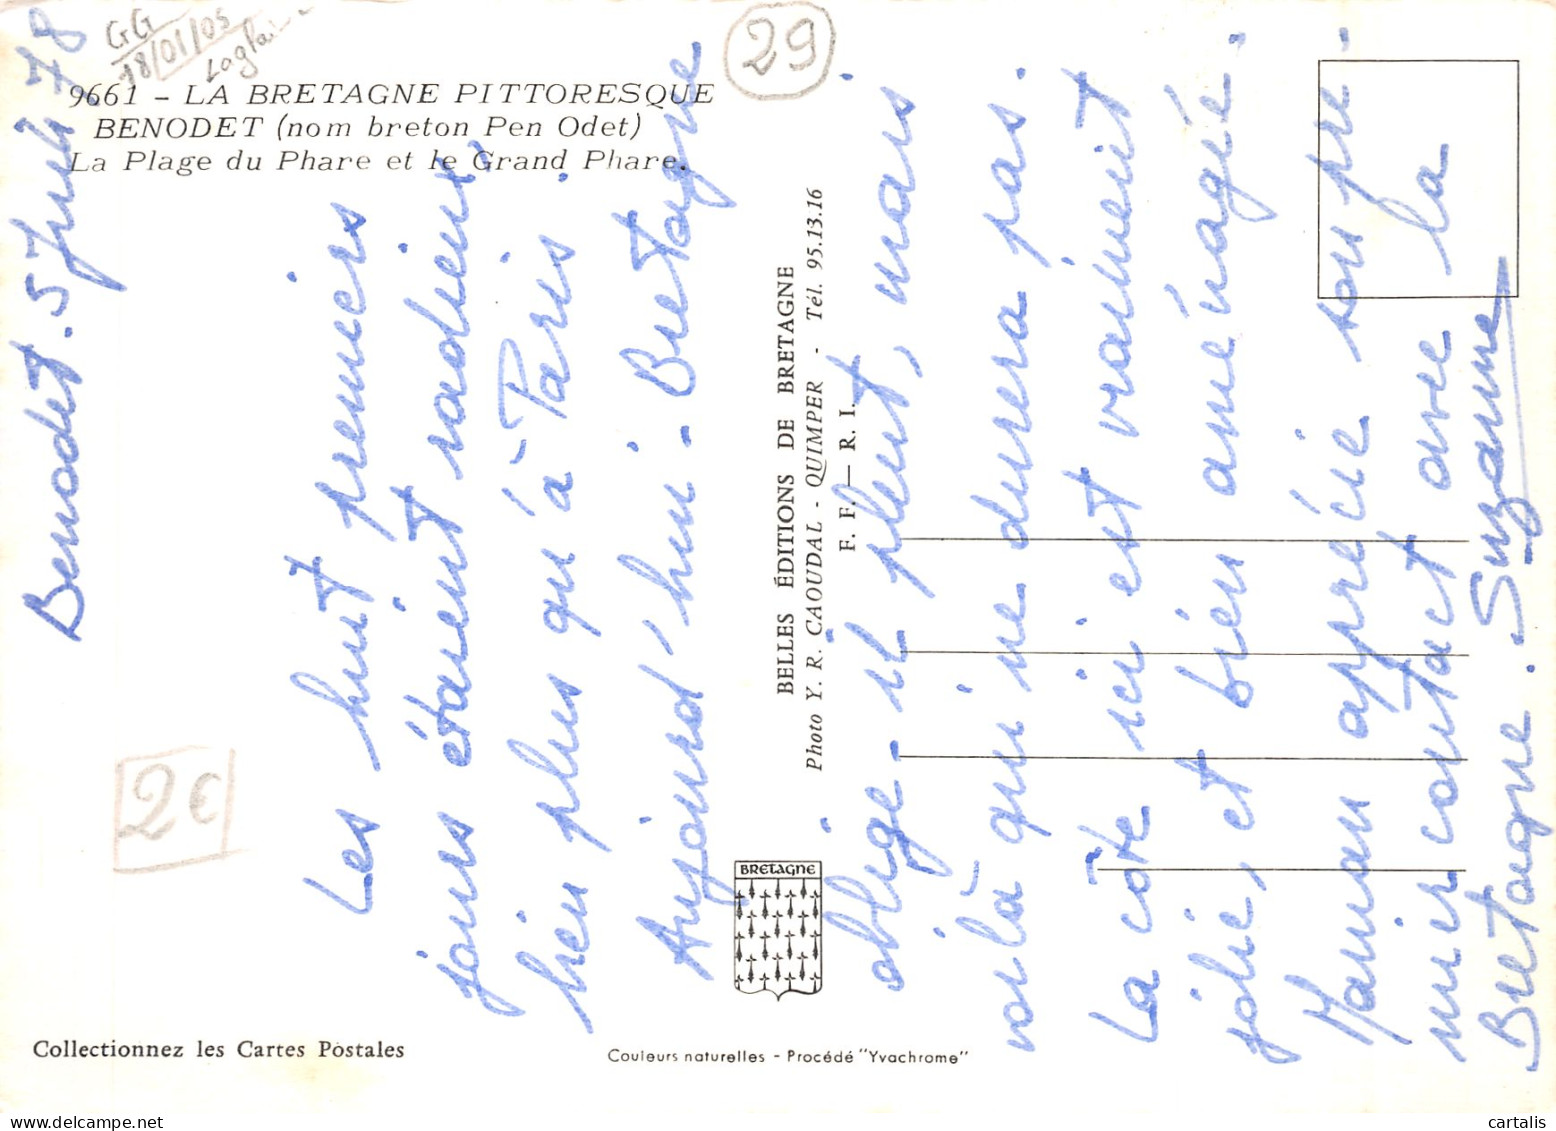 GG
18/01/05
29
9661 - LA BRETAGNE PITTORESQUE
BENODET (nom breton Pen Odet)
La Plage du Phare et le Grand Phare.
Benodet. 5 Juil 78
Les huit premiers
jours étaient radieux,
bien plus qu'à Paris.
Aujourd'hui - Bretagne
oblige - il pleut, mais
voilà qui ne durera pas.
La côte ici est vraiment
jolie, et bien aménagée.
Maman apprécie son pre-
mier contact avec la
Bretagne. Suzanne
BELLES ÉDITIONS DE BRETAGNE
Photo Y. R. CAOUDAL - QUIMPER - Tél. 95.13.16
F. F. — R. I.
2€
BRETAGNE
Collectionnez les Cartes Postales
Couleurs naturelles - Procédé "Yvachrome"
cartalis